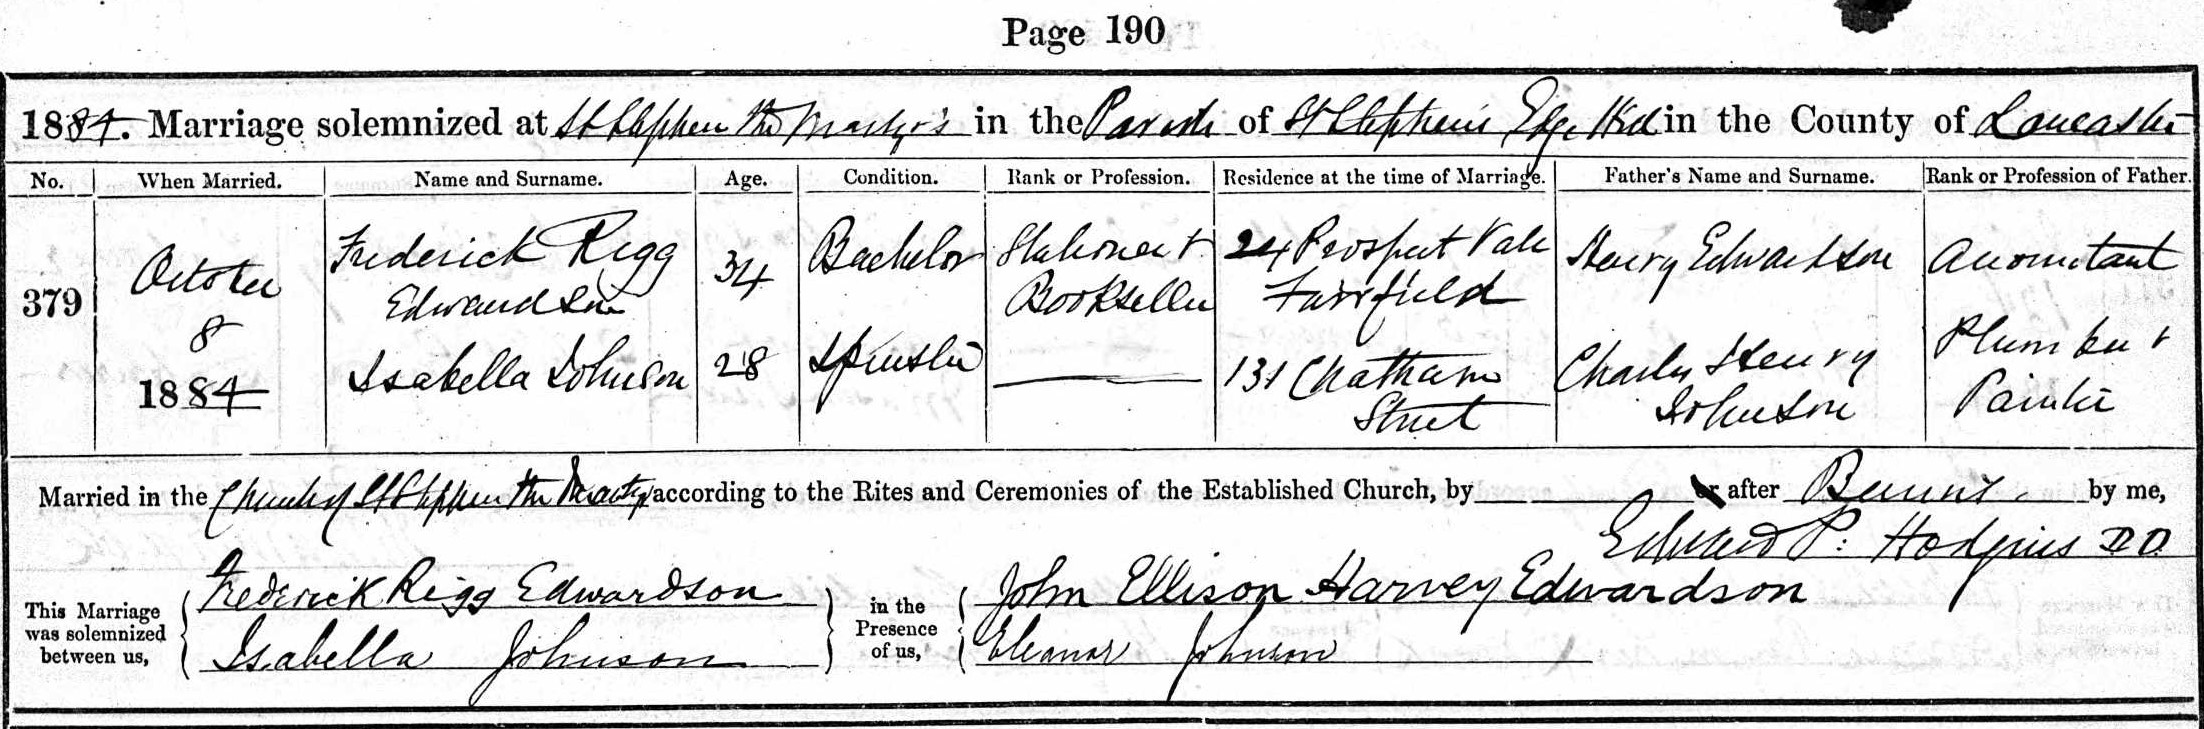 Page 190
1884. Marriage solemnized at St Stephen the Martyr's in the Parish of St Stephen's Edge Hill in the County of Lancaster
No. When Married. Name and Surname. Age. Condition. Rank or Profession. Residence at the time of Marriage. Father's Name and Surname. Rank or Profession of Father.
379 October 8 1884 Frederick Rigg Edwardson 34 Bachelor Stationer & Bookseller 24 Prospect Vale Fairfield Henry Edwardson Accountant
Isabella Johnson 28 Spinster —— 131 Chatham Street Charles Henry Johnson Plumber & Painter
Married in the Church of St Stephen the Martyr according to the Rites and Ceremonies of the Established Church, by —— or after Banns. by me,
Edward P. Hodgins D D
This Marriage was solemnized between us, Frederick Rigg Edwardson in the Presence of us, John Ellison Harvey Edwardson
Isabella Johnson Eleanor Johnson